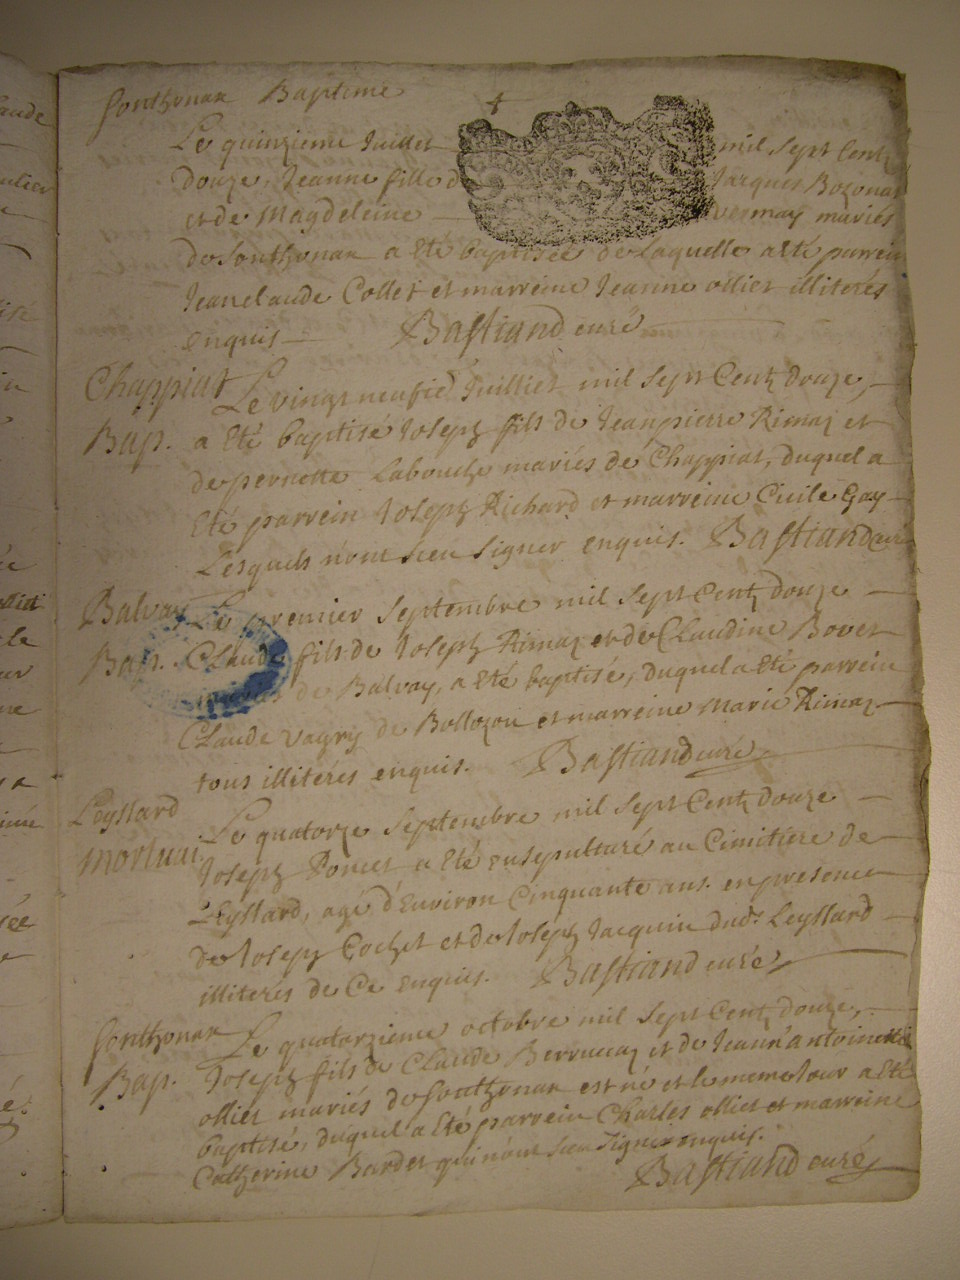 Sonthonax Bapteme
Le quinzieme Juillet mil sept Centz
douze, Jeanne fille d Jacques Bozonat
et de Magdeleine vernay mariés
de Sonthonax a eté baptisée de Laquelle a eté parrein
Jeanclaude Collet et marreine Jeanne ollier illiterés
enquis Bastiand curé
Chappiat Le vingt neufie Juillier mil Sept Centz douze,
Bap. a eté baptisé Joseph fils de Jeanpierre Rimaz et
de pernette Labouche mariés de Chappiat, duquel a
eté parrein Joseph Richard et marreine Civile Gay
Lesquels n'ont sceu Signer enquis. Bastiand curé
Balvay Le premier Septembre mil Sept Centz Douze
Bap. Claude fils de Joseph Rimaz et de Claudine Bovet
de Balvay, a eté baptisé, duquel a eté parrein
Claude vagry de Bollozon et marreine Marie Rimaz
tous illiterés enquis. Bastiand curé
Leyssard Le quatorze Septembre mil Sept Centz Douze
mortuai. Joseph Poncet a eté ensepulturé au Cimitiere de
Leyssard, agé d'Environ Cinquante ans. en presence
de Joseph Cochet et de Joseph Jacquin dud. Leyssard
illiterés de Ce enquis. Bastiand curé
Sonthonax Le quatorzieme octobre mil Sept Centz douze,
Bap. Joseph fils de Claude Berruccaz et de Jeann'antoinette
ollier mariés de Sonthonax est né et le meme Jour a eté
baptisé, duquel a eté parrein Charles ollier et marreine
Catherine Bardet qui n'ont sceu Signer enquis.
Bastiand curé